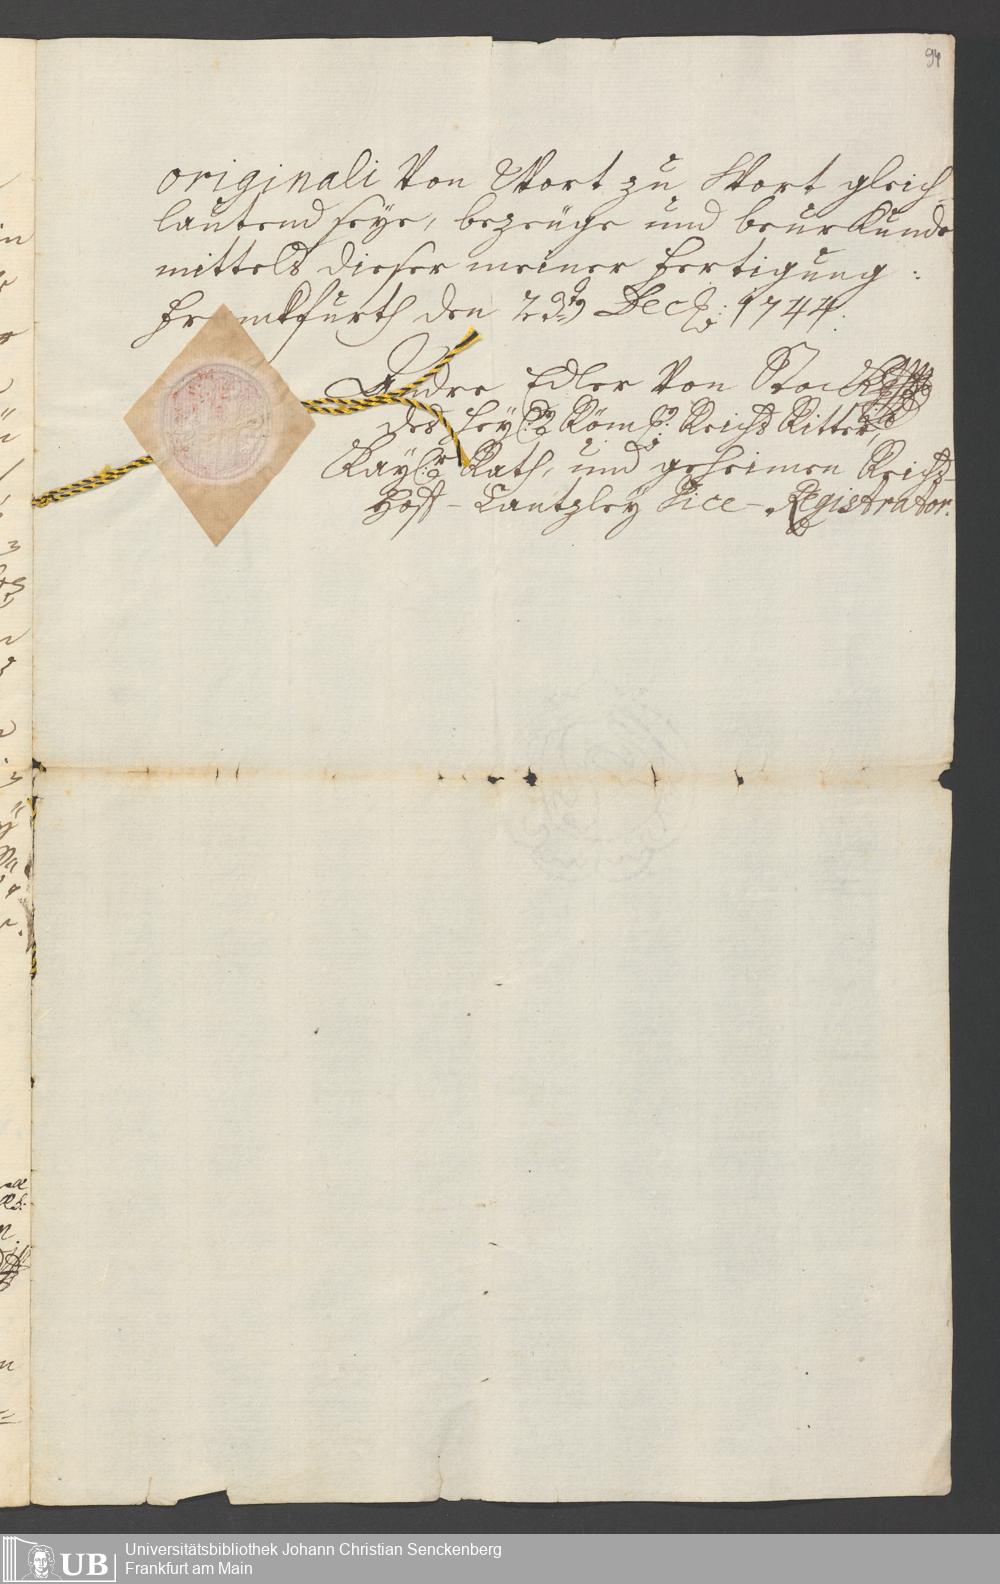 94
originali Von Wort zu Wort gleich-
lautend seye, bezeüge und beurkunde
mittels dieser meiner fertigung:
Franckfurth den 23ten Dec: 1744.
Andre Edler Von
des Heyl: Röm: Reichs Ritter,
Kayl: Rath, und geheimen Reichs-
Hoff-Cantzley Vice-Registrator.
UB
Universitätsbibliothek Johann Christian Senckenberg
Frankfurt am Main